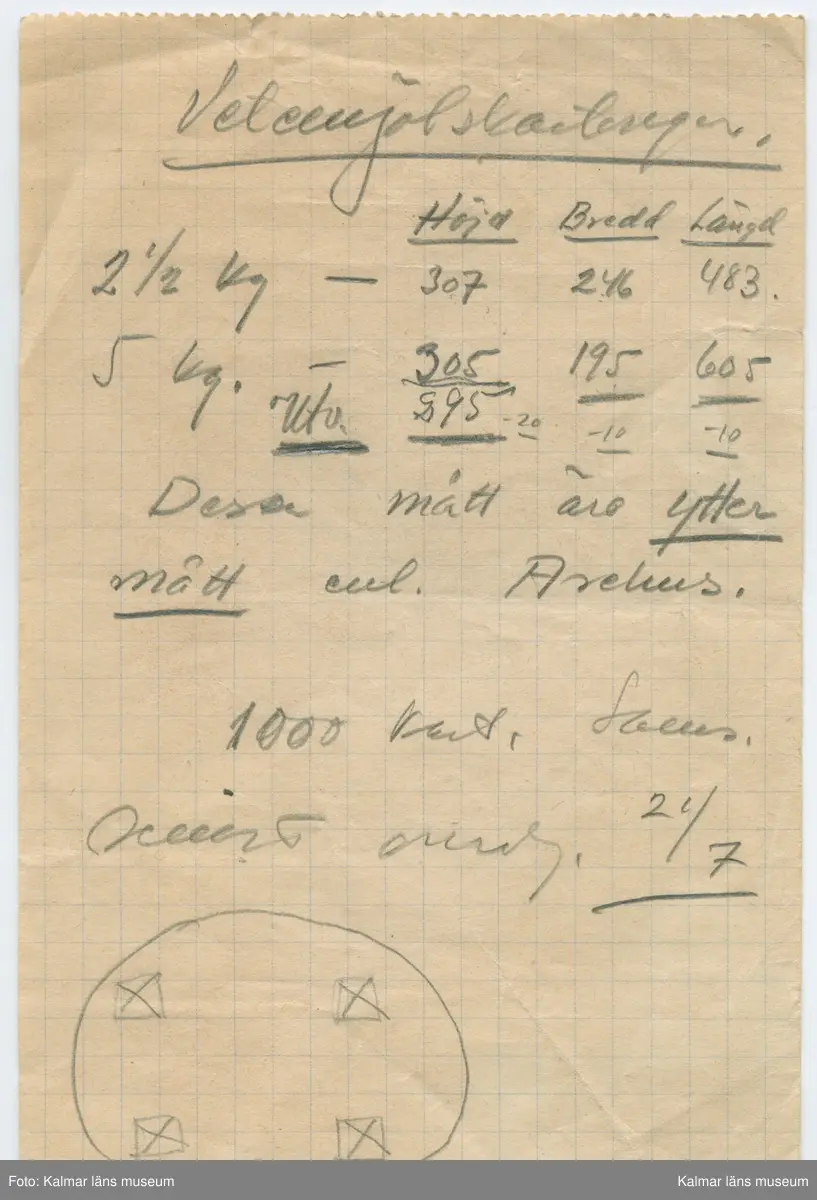 Höjd Bredd Längd
2 1/2 kg — 307 246 483.
5 kg. — 305 195 605
Utv. 295 -20 -10 -10
Dessa mått äro ytter
mått enl. Arehns.
1000 kart.
senast onsdg. 21/7
Foto: Kalmar läns museum Kalmar läns museum